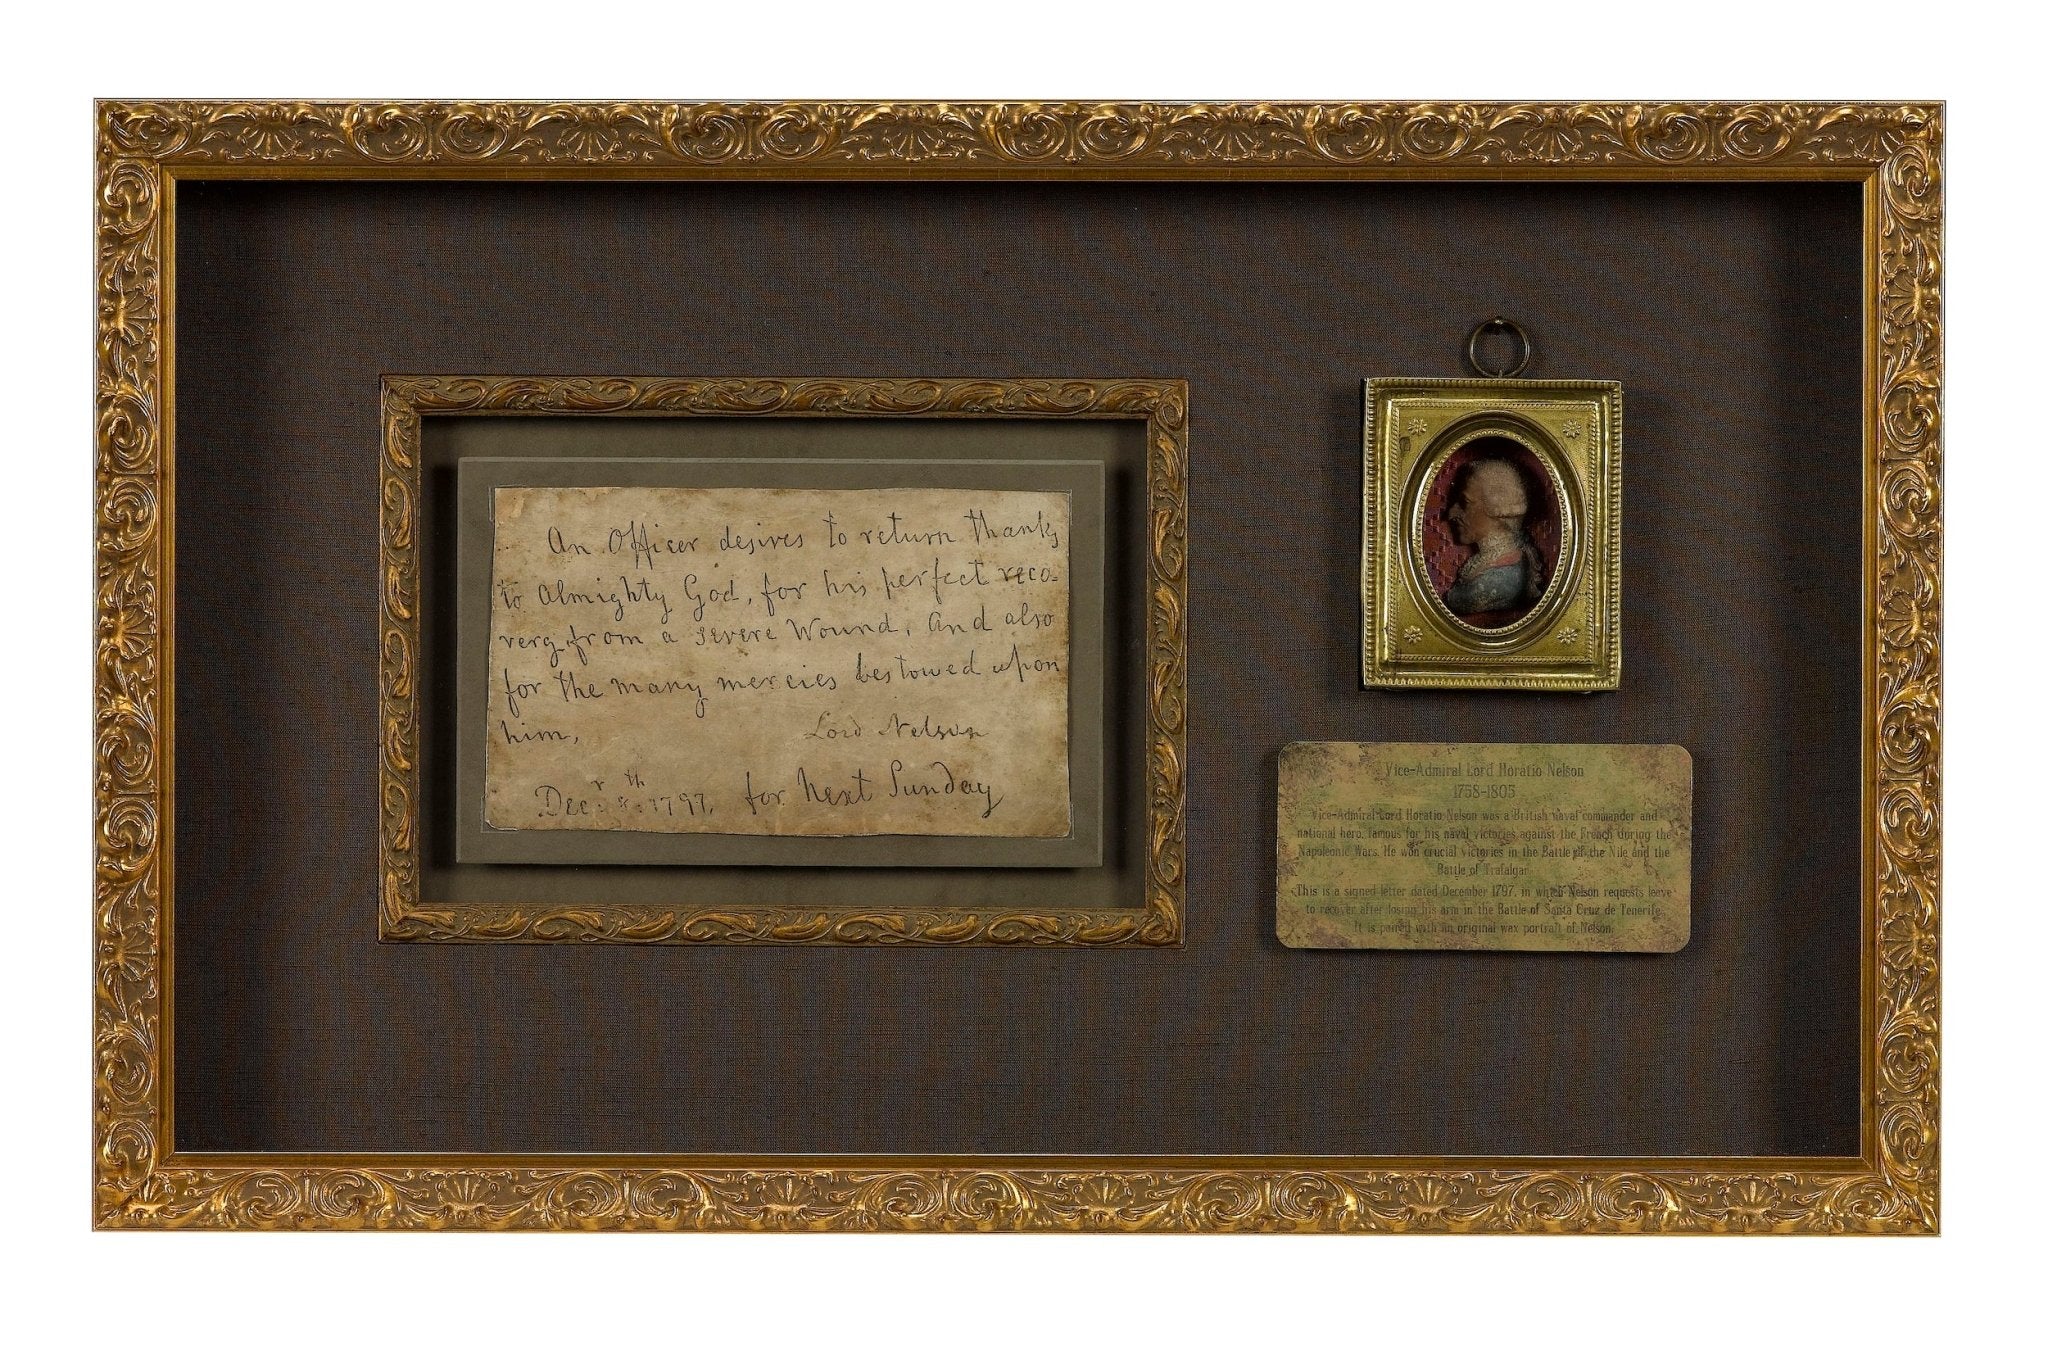 An Officer desires to return thanks
to Almighty God, for his perfect reco-
very from a severe Wound, And also
for the many mercies bestowed upon
him,
Lord Nelson
Decr. 8th. 1797, for next Sunday
Vice-Admiral Lord Horatio Nelson
1758-1805
Vice-Admiral Lord Horatio Nelson was a British naval commander and
national hero, famous for his naval victories against the French during the
Napoleonic Wars. He won crucial victories in the Battle of the Nile and the
Battle of Trafalgar.
This is a signed letter dated December 1797, in which Nelson requests leave
to recover after losing his arm in the Battle of Santa Cruz de Tenerife.
It is paired with an original wax portrait of Nelson.